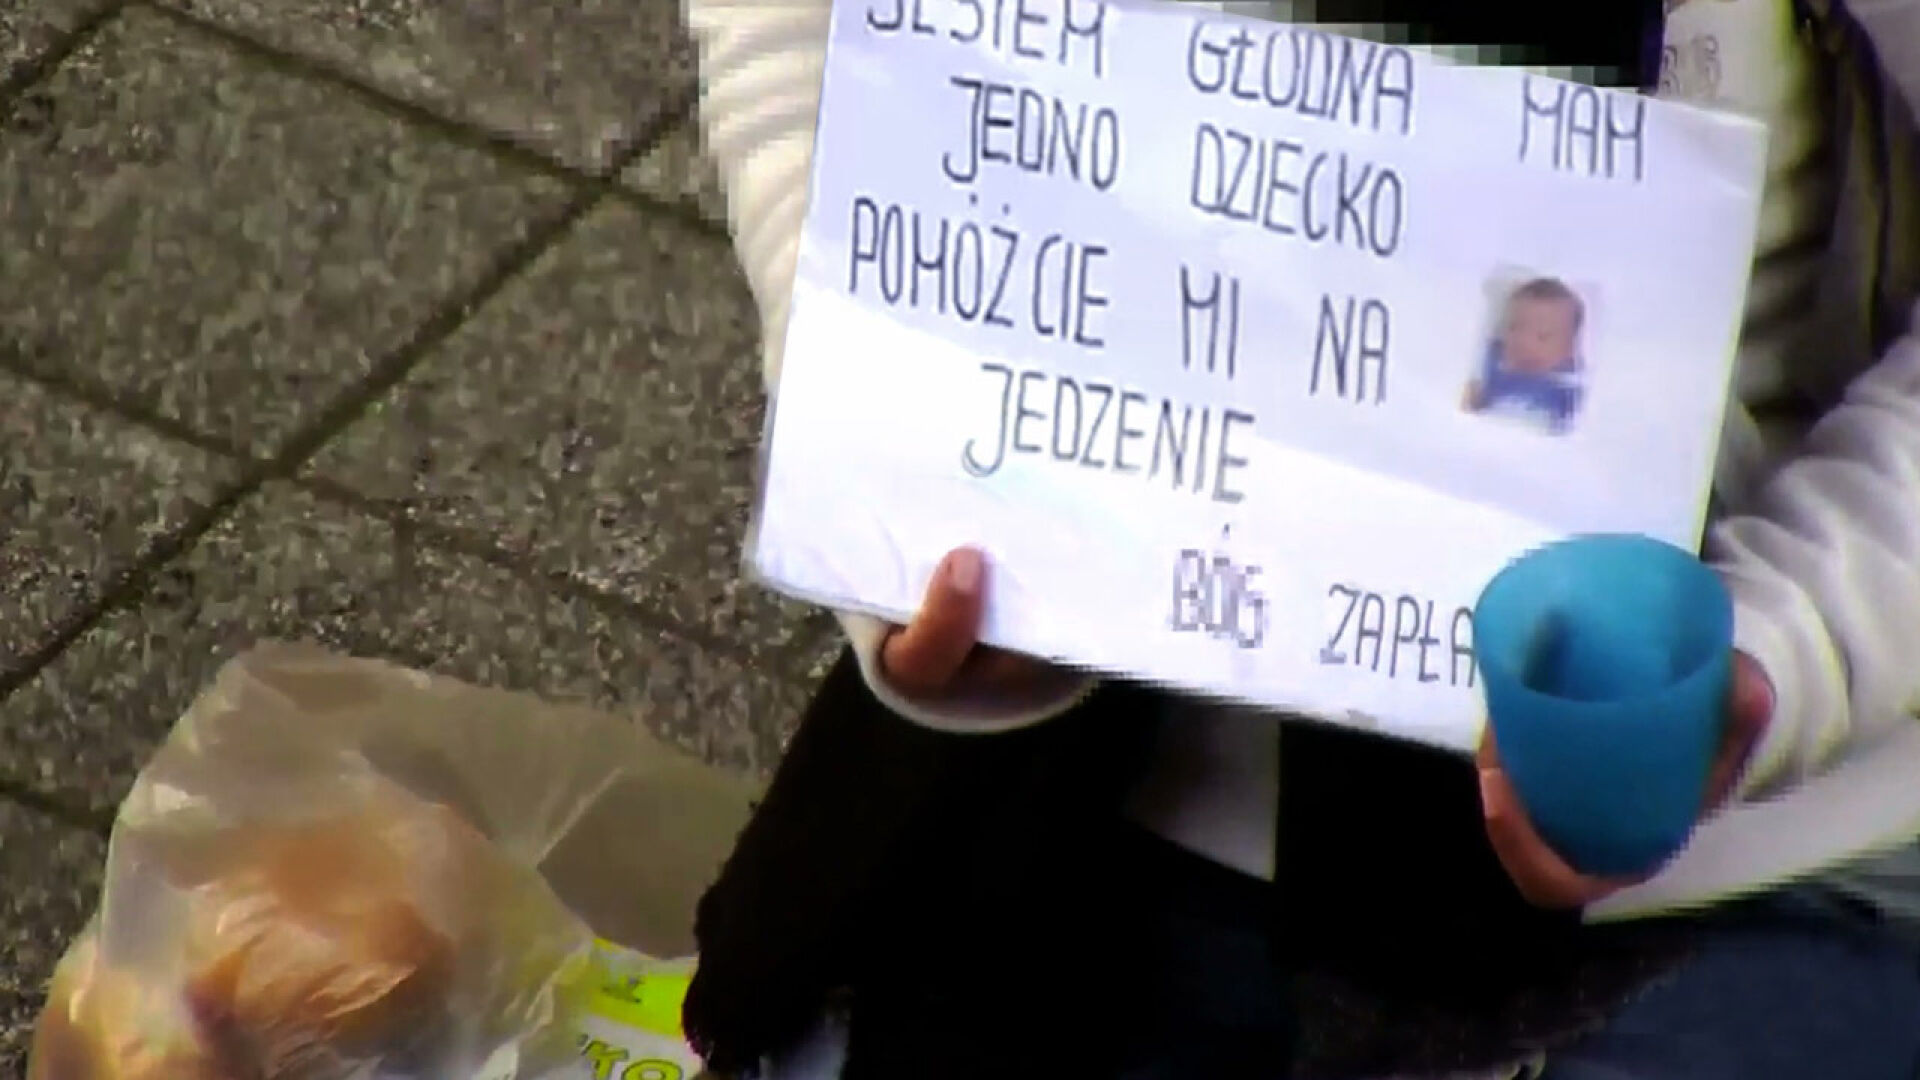 JESTEM GŁODNA MAM
JEDNO DZIECKO
POMÓŻCIE MI NA
JEDZENIE
BÓG ZAPŁA
KO